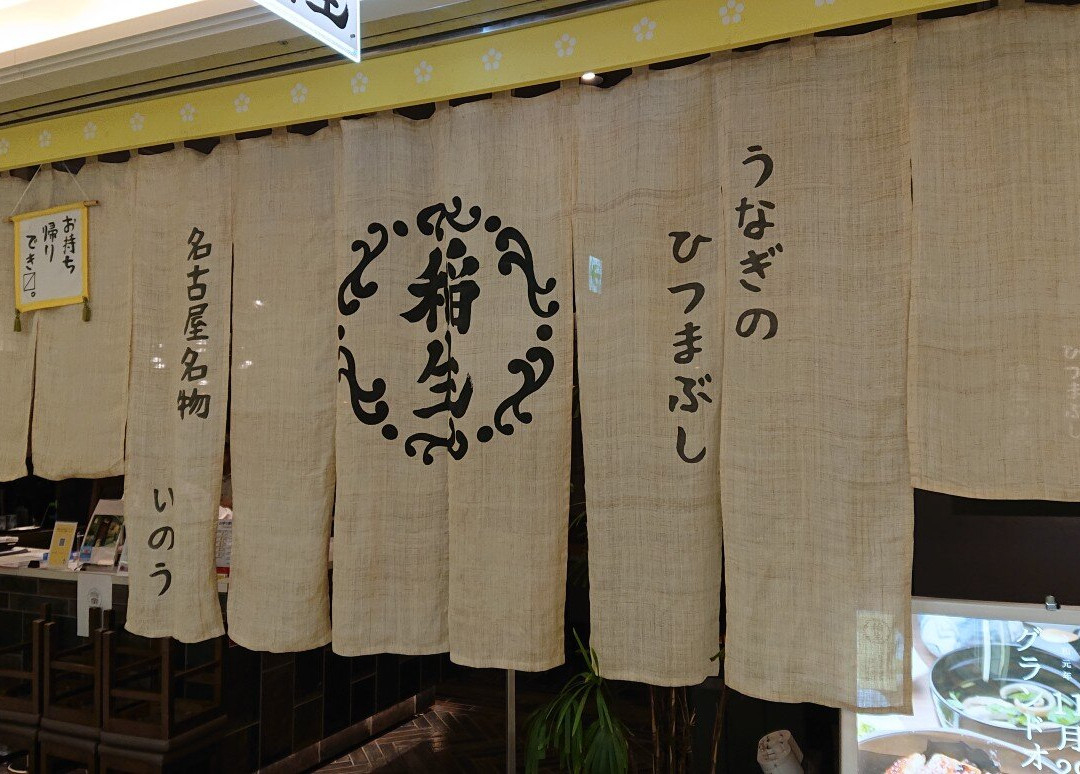 うなぎの
ひつまぶし
稲生
名古屋名物
いのう
お持ち
帰り
でき〼。
ひつまぶし
グランドオ